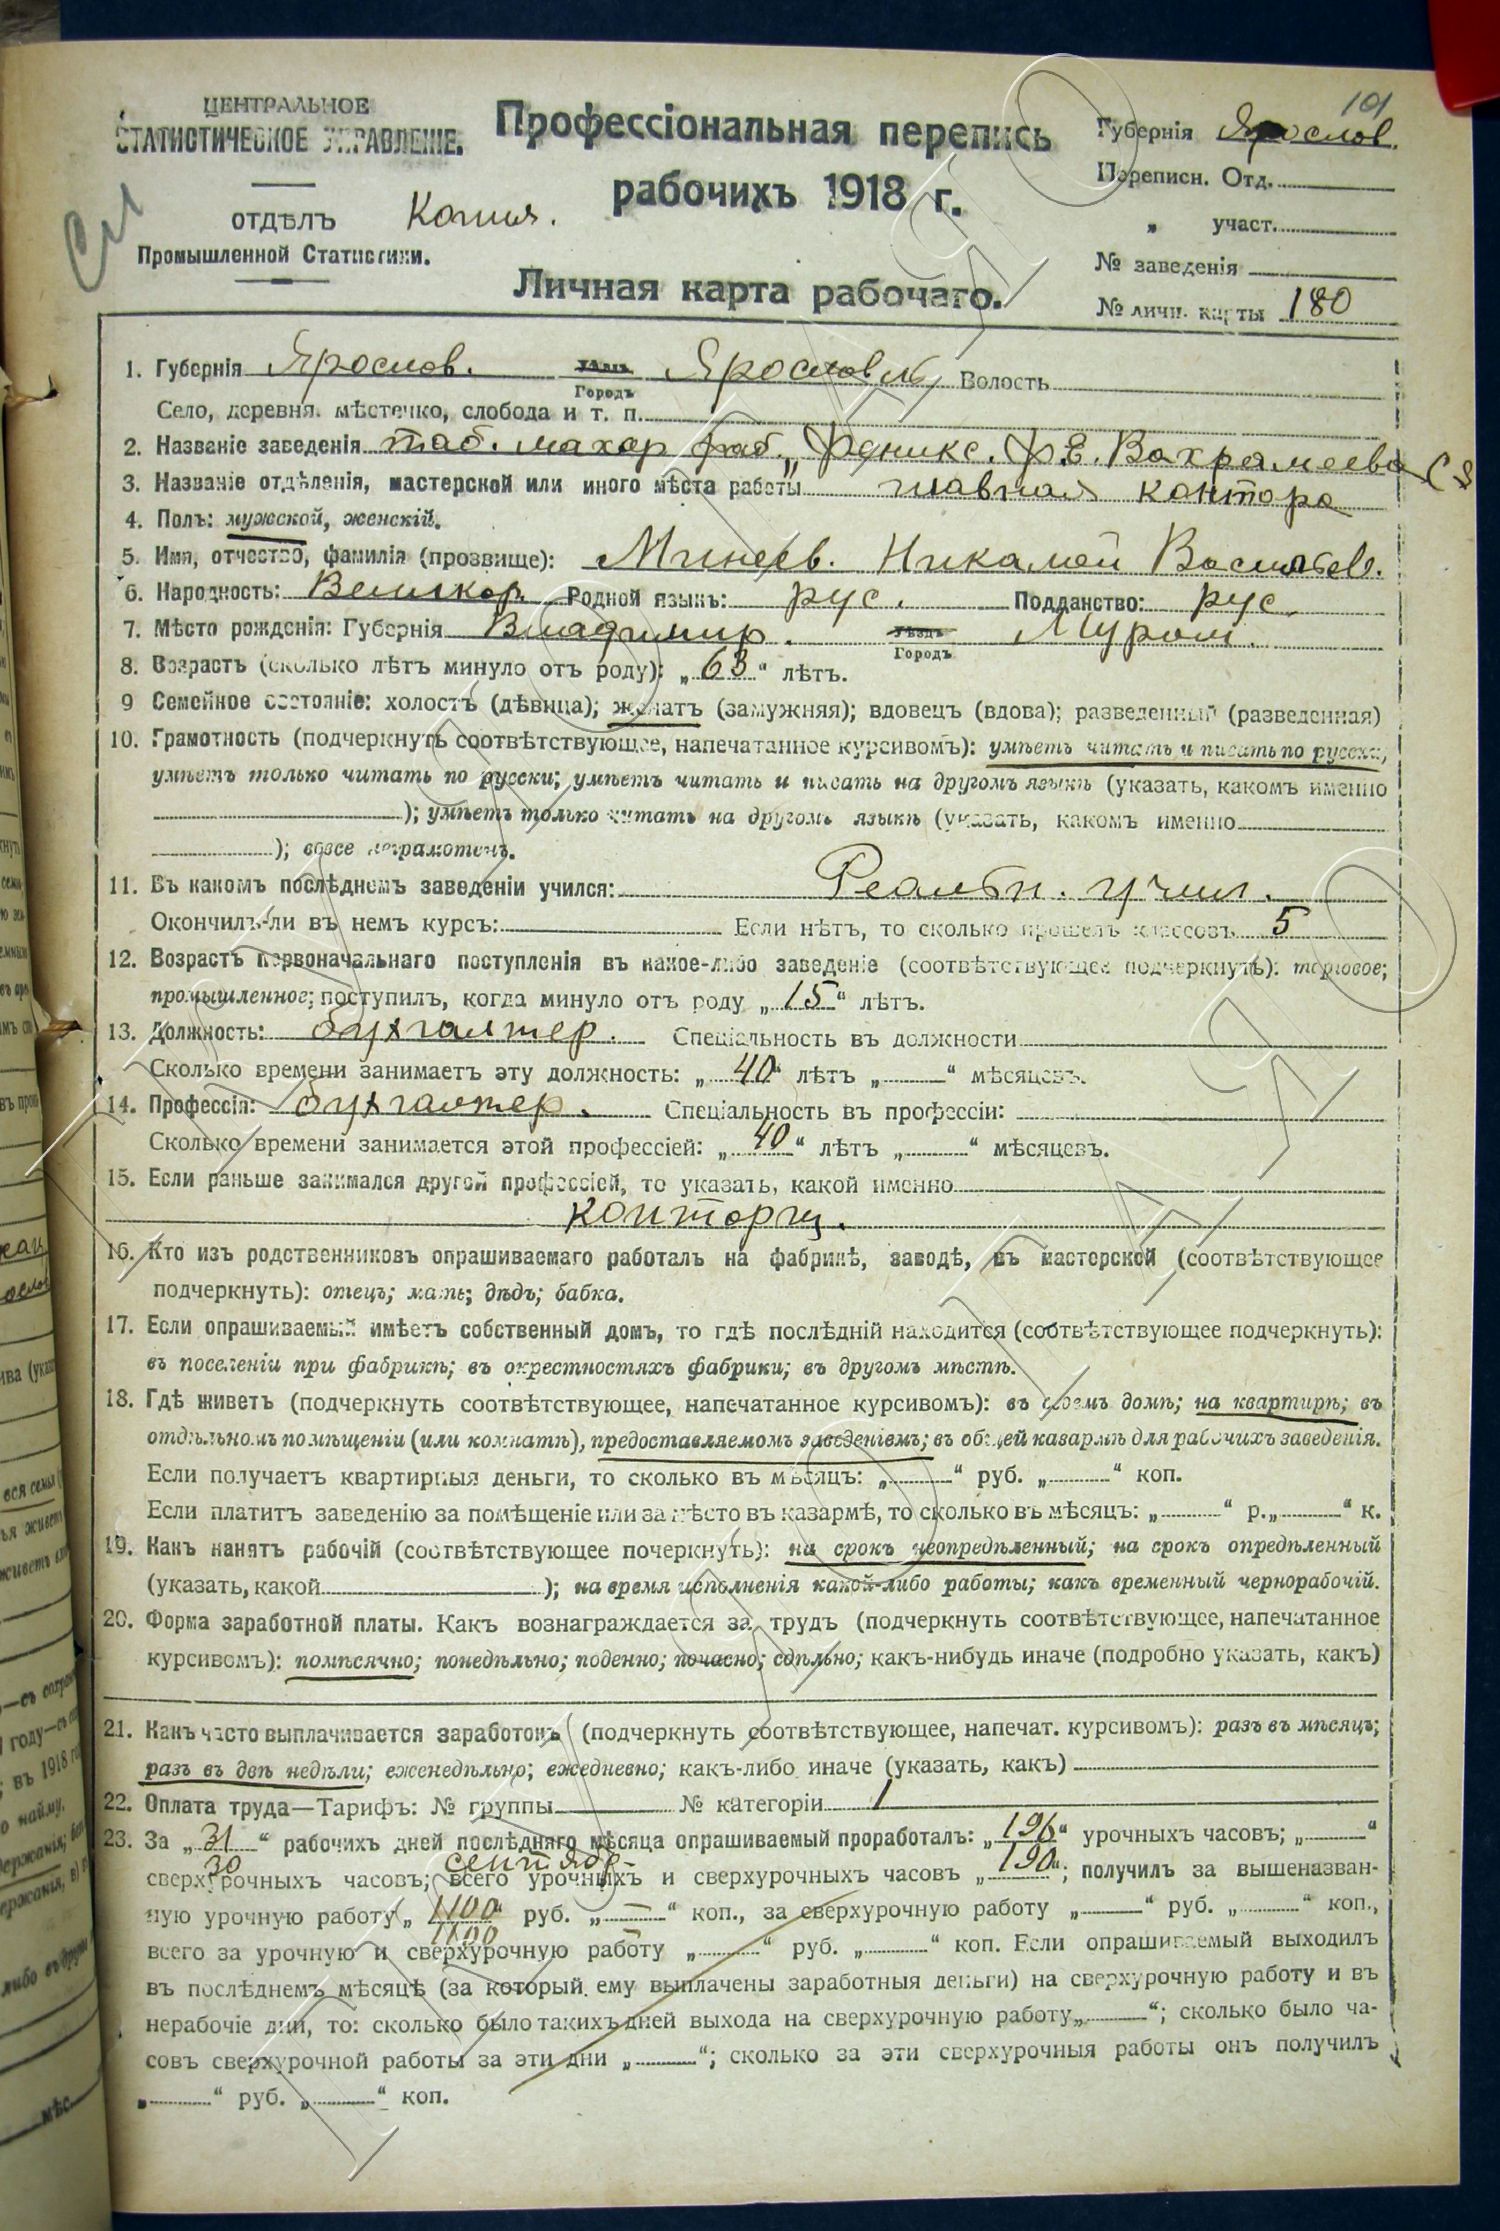 101
ЦЕНТРАЛЬНОЕ
СТАТИСТИЧЕСКОЕ УПРАВЛЕНІЕ.
ОТДѢЛЪ
Промышленной Статистики.
Копия.
Профессіональная перепись
рабочихъ 1918 г.
Личная карта рабочаго.
Губернія Ярослов.
Переписн. Отд.
„ участ.
№ заведенія
№ личн. карты 180
1. Губернія Ярослов. Городъ Ярославль Волость
Село, деревня, мѣстечко, слобода и т. п.
2. Названіе заведенія таб. махор фаб. „Феникс. Ф. Е. Вахрамеева С
3. Названіе отдѣленія, мастерской или иного мѣста работы главная контора
4. Полъ: мужской, женскій.
5. Имя, отчество, фамилія (прозвище): Минеев. Николай Васильев.
6. Народность: Великор. Родной языкъ: рус. Подданство: рус.
7. Мѣсто рожденія: Губернія Владимир. Уѣздъ Городъ Муром.
8. Возрастъ (сколько лѣтъ минуло отъ роду): „63“ лѣтъ.
9 Семейное состояніе: холостъ (дѣвица); женатъ (замужняя); вдовецъ (вдова); разведенный (разведенная)
10. Грамотность (подчеркнуть соотвѣтствующее, напечатанное курсивомъ): умѣетъ читать и писать по русски;
умѣетъ только читать по русски; умѣетъ читать и писать на другомъ языкѣ (указать, какомъ именно
); умѣетъ только читать на другомъ языкѣ (указать, какомъ именно
); вовсе неграмотенъ.
11. Въ какомъ послѣднемъ заведеніи учился: Реальн. учил.
Окончилъ-ли въ немъ курсъ: Если нѣтъ, то сколько прошелъ классовъ 5
12. Возрастъ первоначальнаго поступленія въ какое-либо заведеніе (соотвѣтствующее подчеркнуть): торговое;
промышленное; поступилъ, когда минуло отъ роду „15“ лѣтъ.
13. Должность: бухгалтер. Спеціальность въ должности
Сколько времени занимаетъ эту должность: „40“ лѣтъ „ “ мѣсяцевъ.
14. Профессія: бухгалтер. Спеціальность въ профессіи:
Сколько времени занимается этой профессіей: „40“ лѣтъ „ “ мѣсяцевъ.
15. Если раньше занимался другой профессіей, то указать, какой именно
конторщ.
16. Кто изъ родственниковъ опрашиваемаго работалъ на фабрикѣ, заводѣ, въ мастерской (соотвѣтствующее
подчеркнуть): отецъ; мать; дѣдъ; бабка.
17. Если опрашиваемый имѣетъ собственный домъ, то гдѣ послѣдній находится (соотвѣтствующее подчеркнуть):
въ поселеніи при фабрикѣ; въ окрестностяхъ фабрики; въ другомъ мѣстѣ.
18. Гдѣ живетъ (подчеркнуть соотвѣтствующее, напечатанное курсивомъ): въ своемъ домѣ; на квартирѣ; въ
отдѣльномъ помѣщеніи (или комнатѣ), предоставляемомъ заведеніемъ; въ общей казармѣ для рабочихъ заведенія.
Если получаетъ квартирныя деньги, то сколько въ мѣсяцъ: „ “ руб. „ “ коп.
Если платитъ заведенію за помѣщеніе или за мѣсто въ казармѣ, то сколько въ мѣсяцъ: „ “ р. „ “ к.
19. Какъ нанятъ рабочій (соотвѣтствующее почеркнуть): на срокъ неопредѣленный; на срокъ опредѣленный
(указать, какой ); на время исполненія какой-либо работы; какъ временный чернорабочій.
20. Форма заработной платы. Какъ вознаграждается за трудъ (подчеркнуть соотвѣтствующее, напечатанное
курсивомъ): помѣсячно; понедѣльно; поденно; почасно; сдѣльно; какъ-нибудь иначе (подробно указать, какъ)
21. Какъ часто выплачивается заработокъ (подчеркнуть соотвѣтствующее, напечат. курсивомъ): разъ въ мѣсяцъ;
разъ въ двѣ недѣли; еженедѣльно; ежедневно; какъ-либо иначе (указать, какъ)
22. Оплата труда—Тарифъ: № группы № категоріи 1
23. За „31“ рабочихъ дней послѣдняго мѣсяца опрашиваемый проработалъ: „196“ урочныхъ часовъ; „ “
30 сентябр 190
сверхурочныхъ часовъ; всего урочныхъ и сверхурочныхъ часовъ „ “; получилъ за вышеназван-
ную урочную работу „1100“ руб. „—“ коп., за сверхурочную работу „ “ руб. „ “ коп.,
1100 —
всего за урочную и сверхурочную работу „ “ руб. „ “ коп. Если опрашиваемый выходилъ
въ послѣднемъ мѣсяцѣ (за который ему выплачены заработныя деньги) на сверхурочную работу и въ
нерабочіе дни, то: сколько было такихъ дней выхода на сверхурочную работу „ “; сколько было ча-
совъ сверхурочной работы за эти дни „ “; сколько за эти сверхурочныя работы онъ получилъ
„ “ руб. „ “ коп.